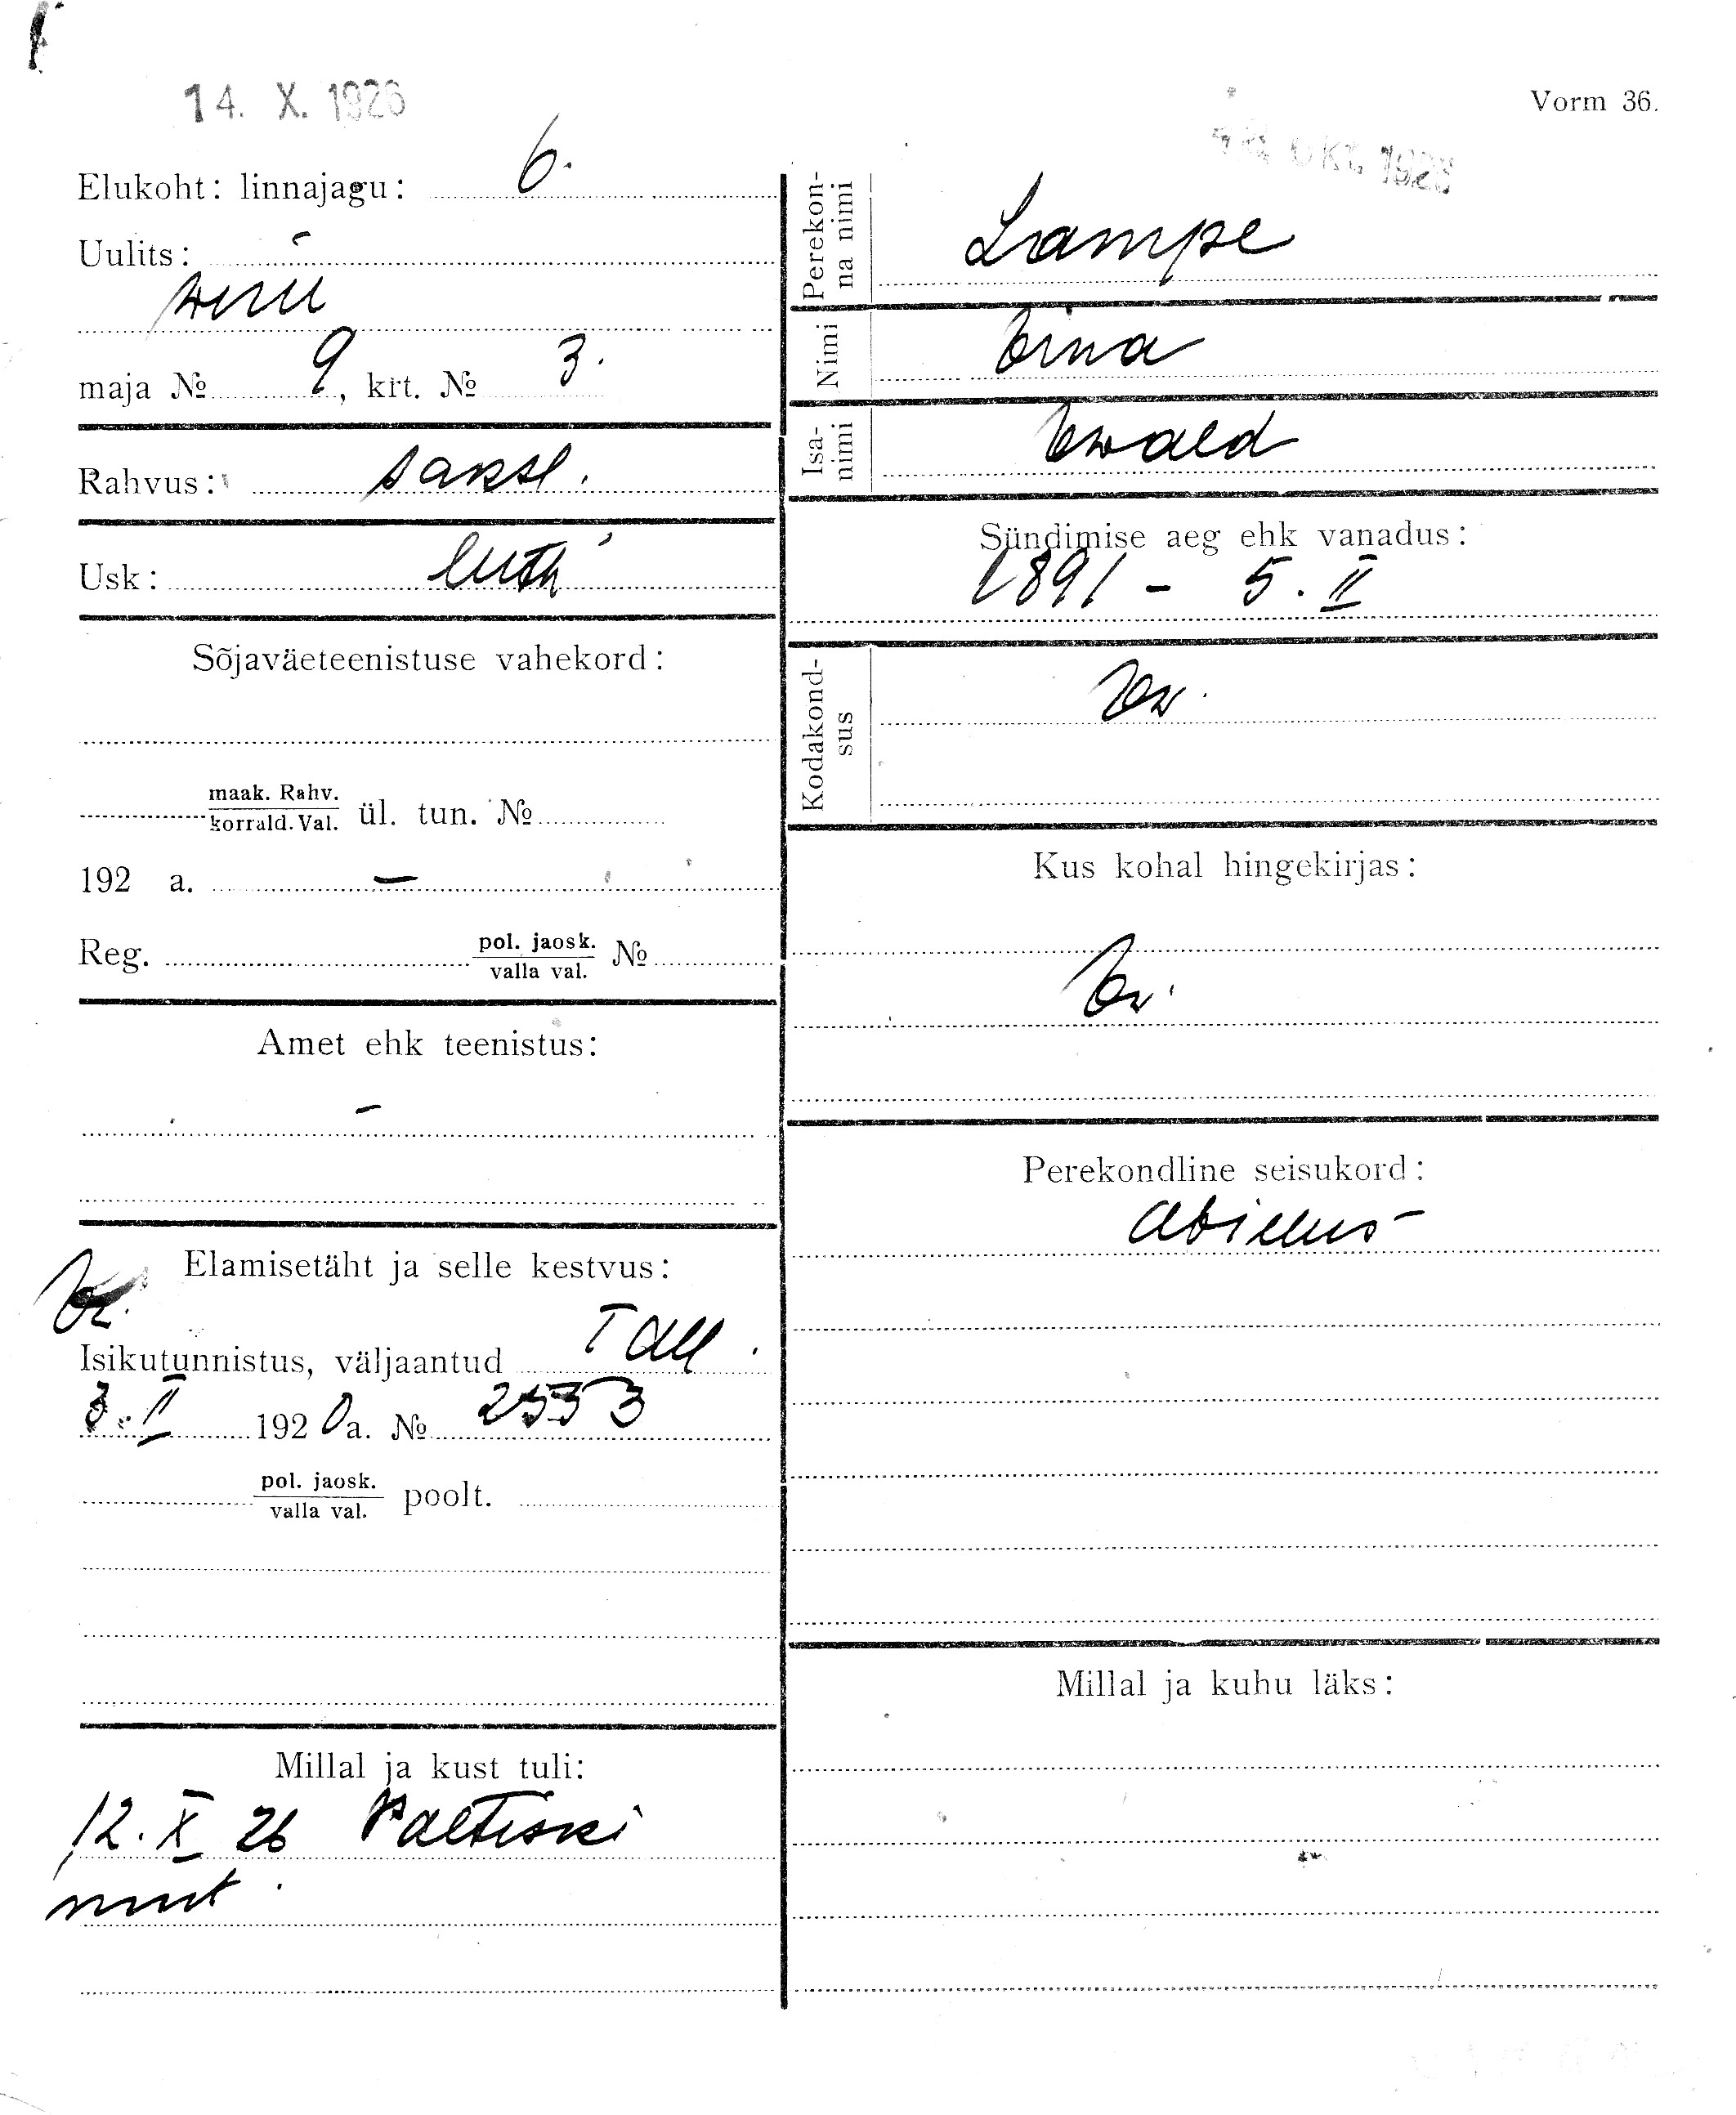 14. X. 1926
Vorm 36.
OKT. 1926
Elukoht: linnajagu: 6.
Uulits:
Wiru
maja № 9, krt. № 3.
Rahvus: saksl.
Usk: luth
Sõjaväeteenistuse vahekord:
maak. Rahv.
korrald. Val. ül. tun. №
192 a. –
Reg. pol. jaosk.
valla val. №
Amet ehk teenistus:
–
Elamisetäht ja selle kestvus:
Isikutunnistus, väljaantud Tall.
3. II 1920 a. № 2553
pol. jaosk.
valla val. poolt.
Millal ja kust tuli:
12. X 26 Paltiski
mnt.
Perekon-
na nimi Lampe
Nimi
Isa-
nimi Ewald
Sündimise aeg ehk vanadus:
1891 - 5. II
Kodakond-
sus
Kus kohal hingekirjas:
Perekondline seisukord:
abielus
Millal ja kuhu läks: